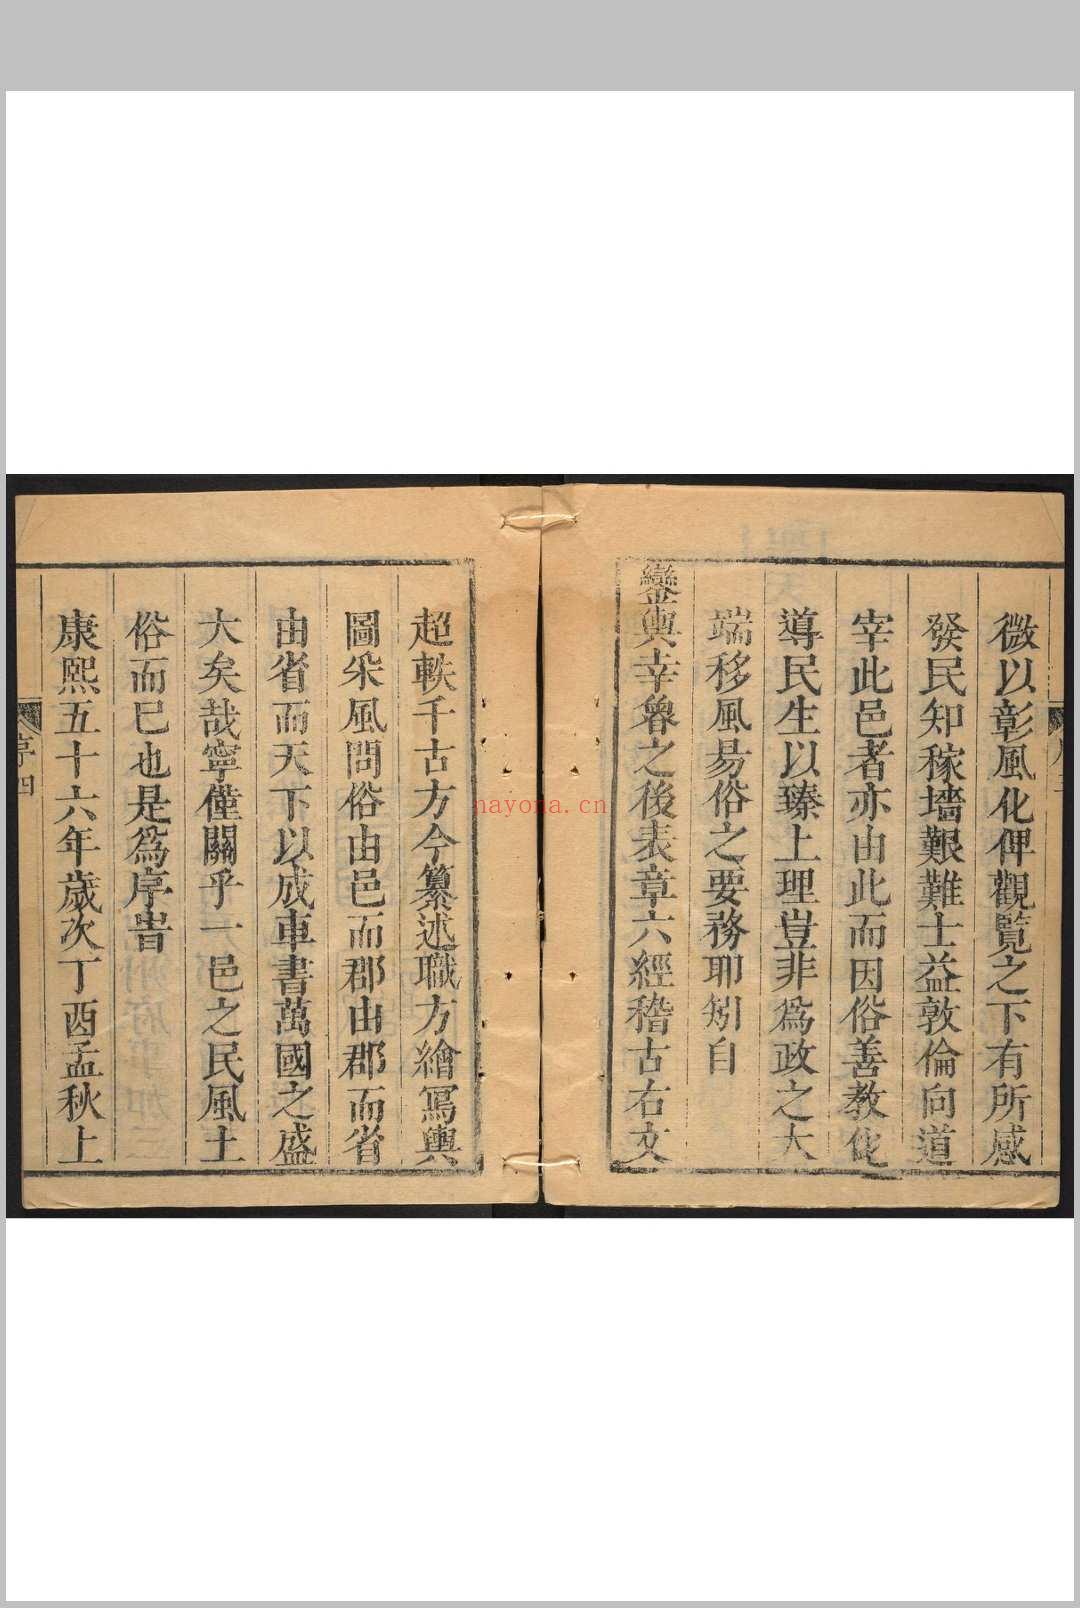 微以彰風化俾觀覽之下有所感
發民知稼墻艱難士益敦倫向道
宰此邑者亦由此而因俗善教化
導民生以臻上理豈非為政之大
端移風易俗之要務耶矧自
鑾輿幸魯之後表章六經稽古右文
超軼千古方今纂述職方繪寫輿
圖采風問俗由邑而郡由郡而省
由省而天下以成車書萬國之盛
大矣哉寧僅關乎一邑之民風土
俗而已也是爲序旹
康熙五十六年歲次丁酉孟秋上
序四
nayona.cn